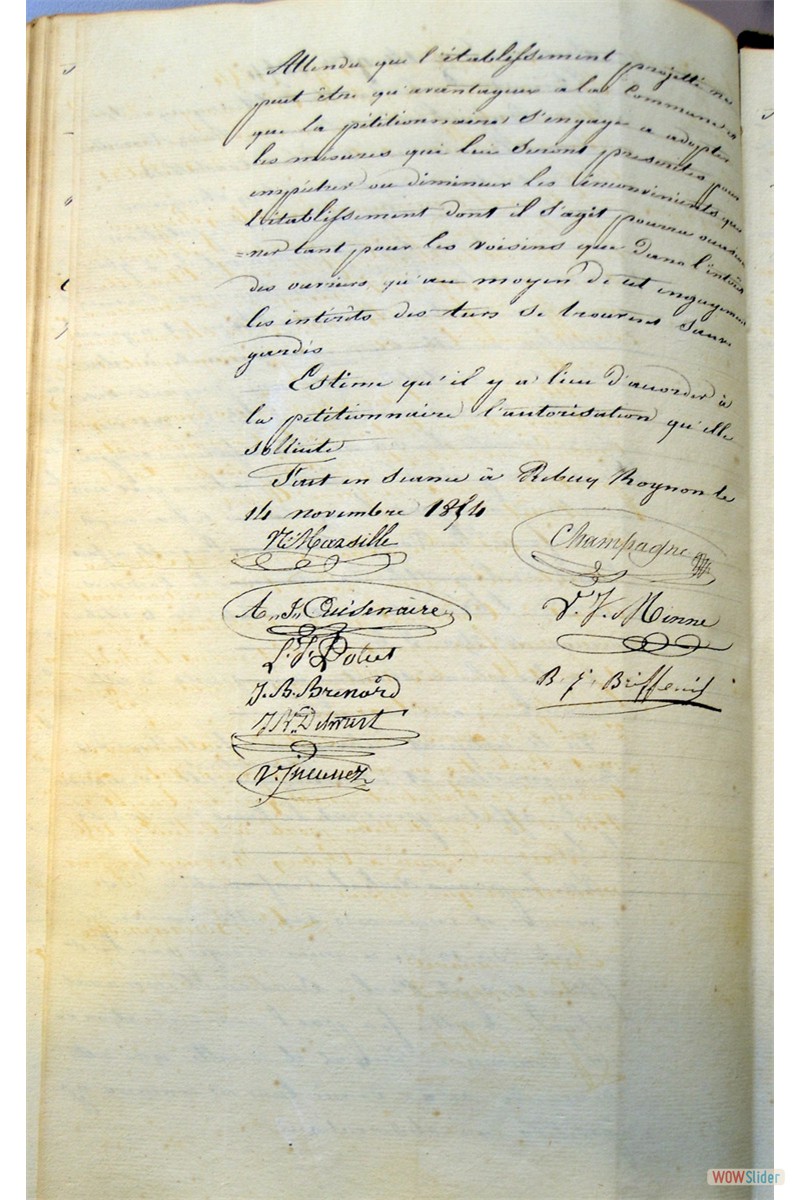 Attendu que l'établissement projetté ne
peut être qu'avantageux à la Commune et
que la pétitionnaire s'engage a adopter
les mesures qui lui seront prescrites pour
empêcher ou diminuer les inconvénients que
l'établissement dont il s'agit pourra occasion
=ner tant pour les voisins que dans l'intérêt
des ouvriers, qu'au moyen de cet engagement
les intérêts des tiers se trouvent sauve
gardés
Estime qu'il y a lieu d'accorder à
la pétitionnaire l'autorisation qu'elle
sollicite
Fait en séance à Rebecq Rognon le
14 novembre 1854
Vr Marsille
Champagne
An Jh Cuisenaire
V. J. Minne
L. J. Polet
B. J. Briffeuil
J. B. Brenard
JBte